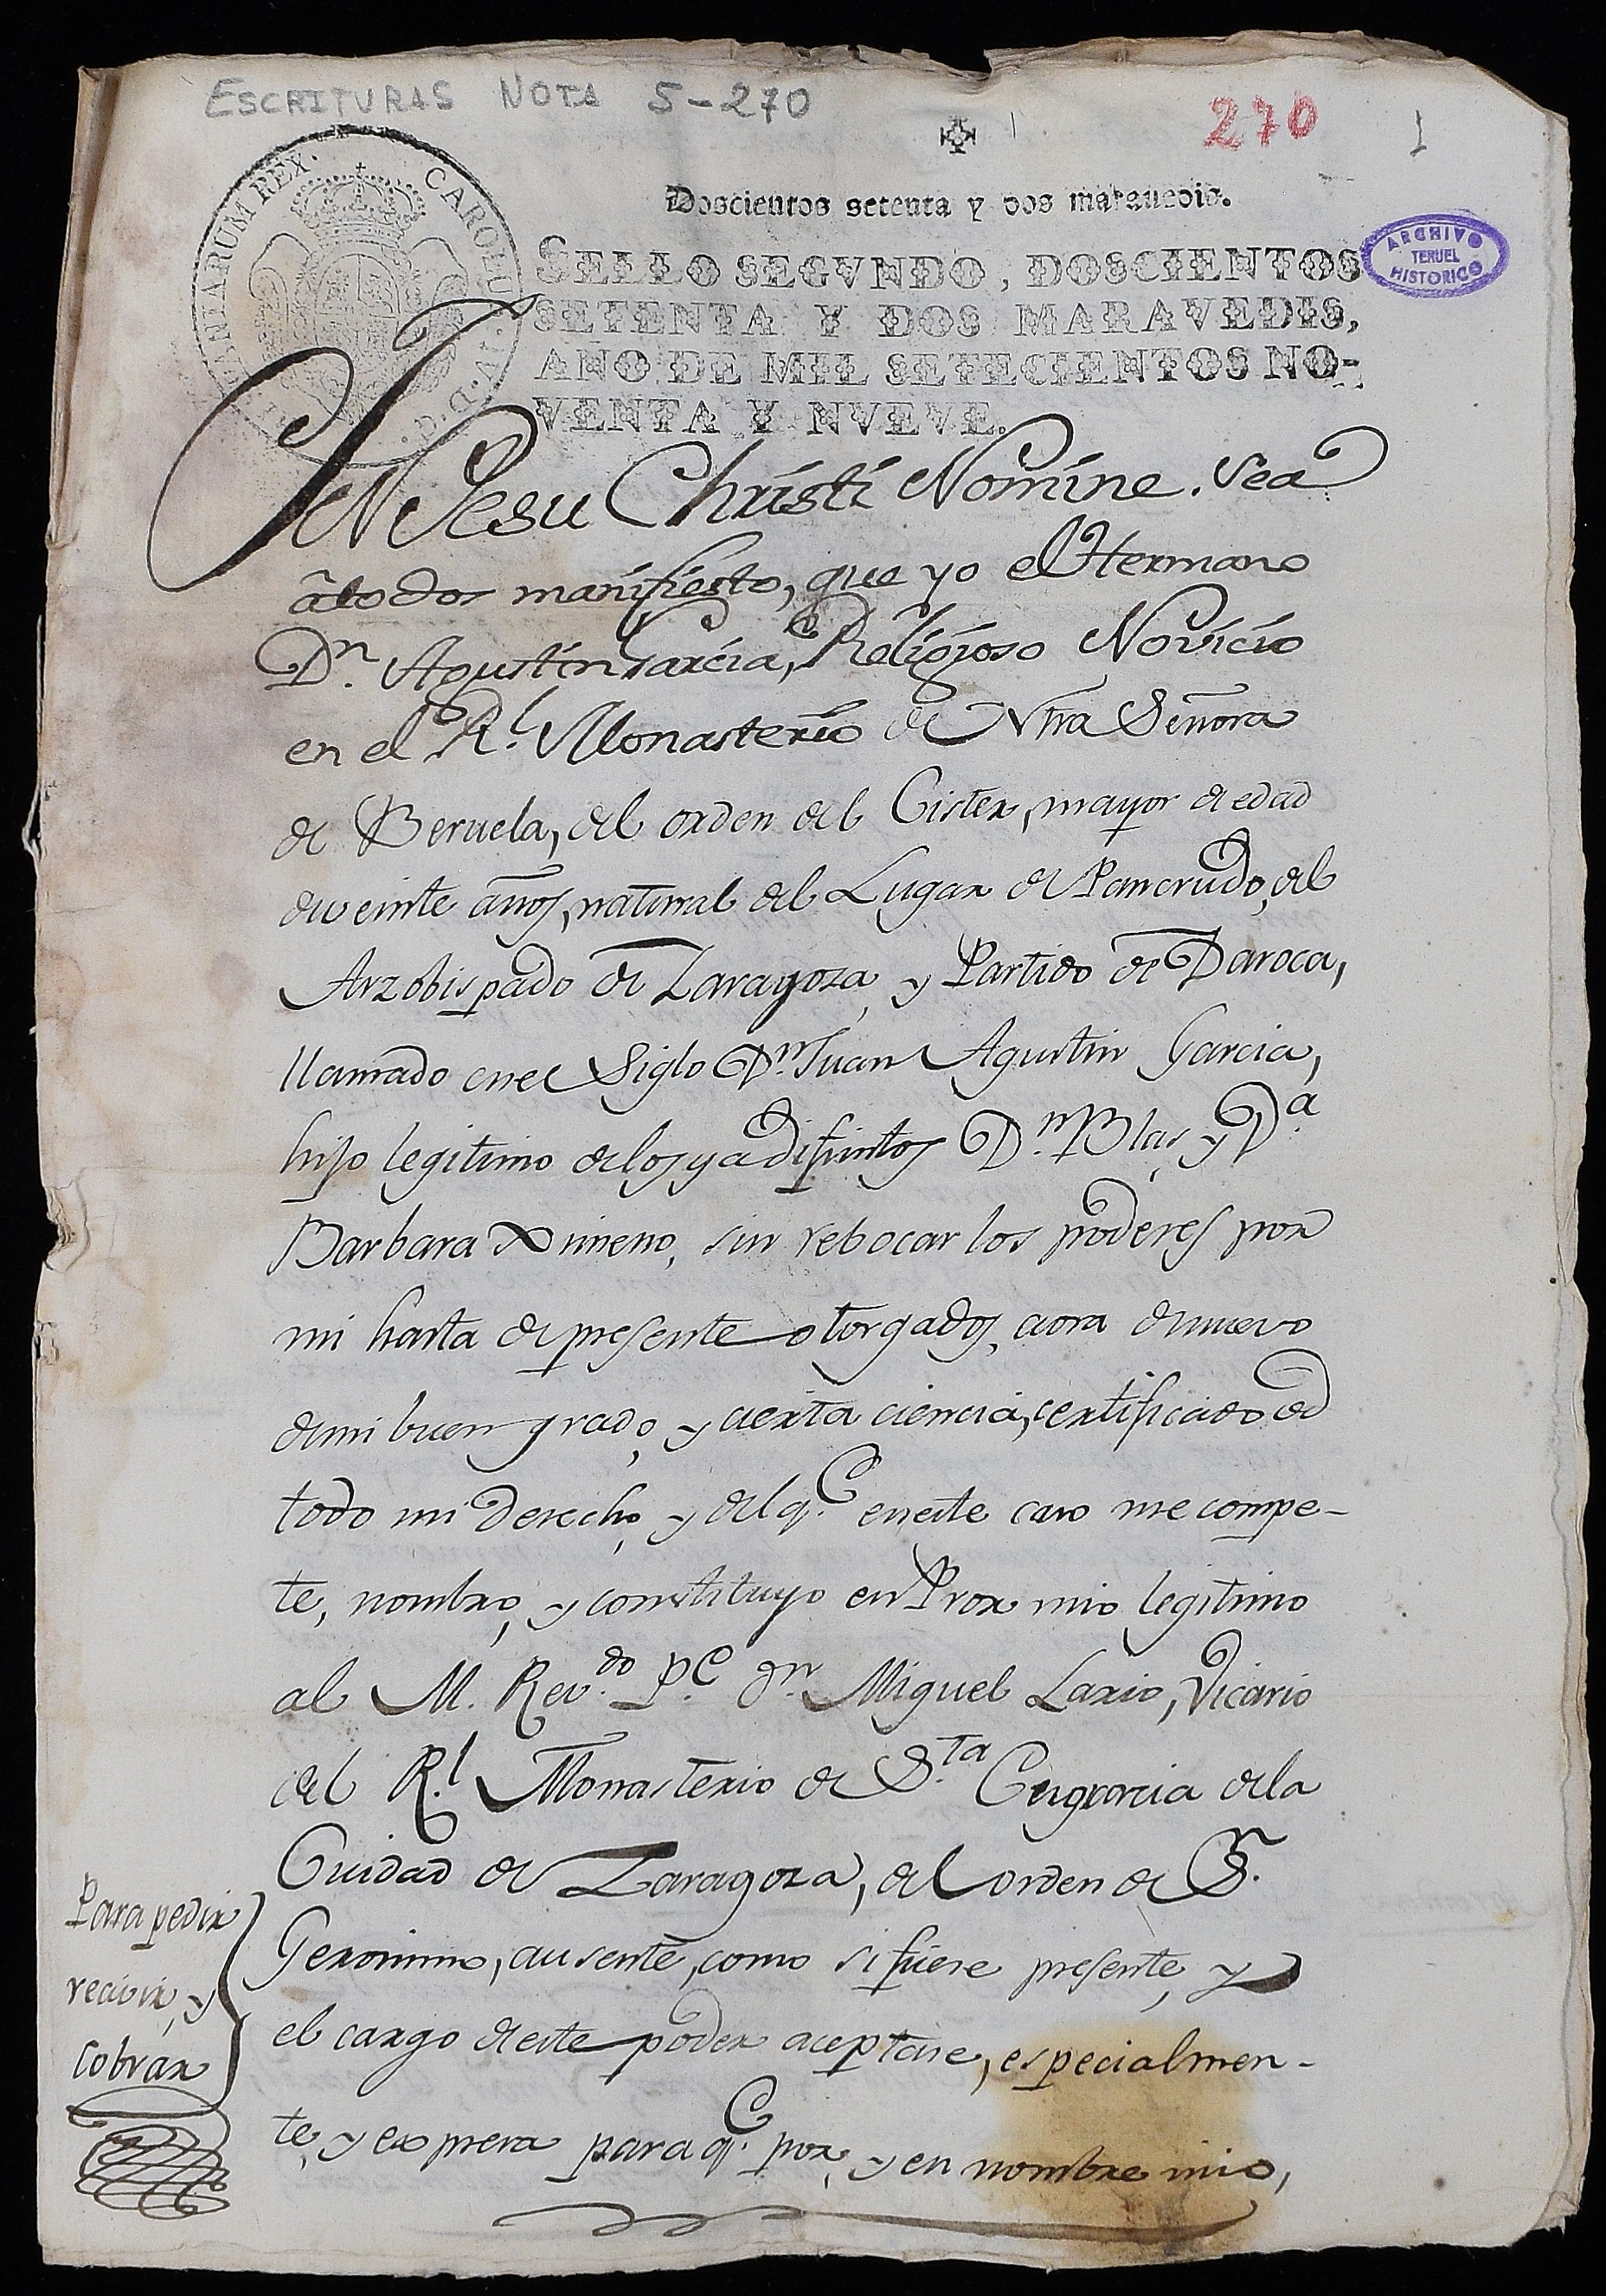 ESCRITURAS NOTA 5-270
270
1
Doscientos setenta y dos marauedis.
CAROLUS. IV. D. G. HISPANIARUM REX.
SELLO SEGVNDO, DOSCIENTOS
SETENTA Y DOS MARAVEDIS,
AÑO DE MIL SETECIENTOS NO-
VENTA Y NVEVE.
ARCHIVO
TERUEL
HISTORICO
IN Jesu Christi Nomine. Sea
a todos manifiesto, que yo el Hermano
Dn. Agustin Garcia, Religioso Novicio
en el Rl. Monasterio de Ntra Señora
de Beruela, del orden del Cister, mayor de edad
de veinte años, natural del Lugar de Pancrudo, del
Arzobispado de Zaragoza, y Partido de Daroca,
llamado en el Siglo Dn. Juan Agustin Garcia,
hijo legitimo de los ya difuntos Dn. Blas, y Da.
Barbara Ximeno, sin rebocar los poderes por
mi hasta de presente otorgados, aora de nuevo
de mi buen grado, y cierta ciencia, certificado de
todo mi derecho, y del qe. en este caso me compe-
te, nombro, y constituyo en Pror mio legitimo
al M. Revdo. Pe. Dn. Miguel Lario, Vicario
del Rl. Monasterio de Sta. Engracia de la
Ciudad de Zaragoza, del orden de Sn.
Geronimo, ausente, como si fuere presente, y
el cargo de este poder aceptase, especialmen-
te, y expresa para qe. por, y en nombre mio,
Para pedir
recivir, y
cobrar